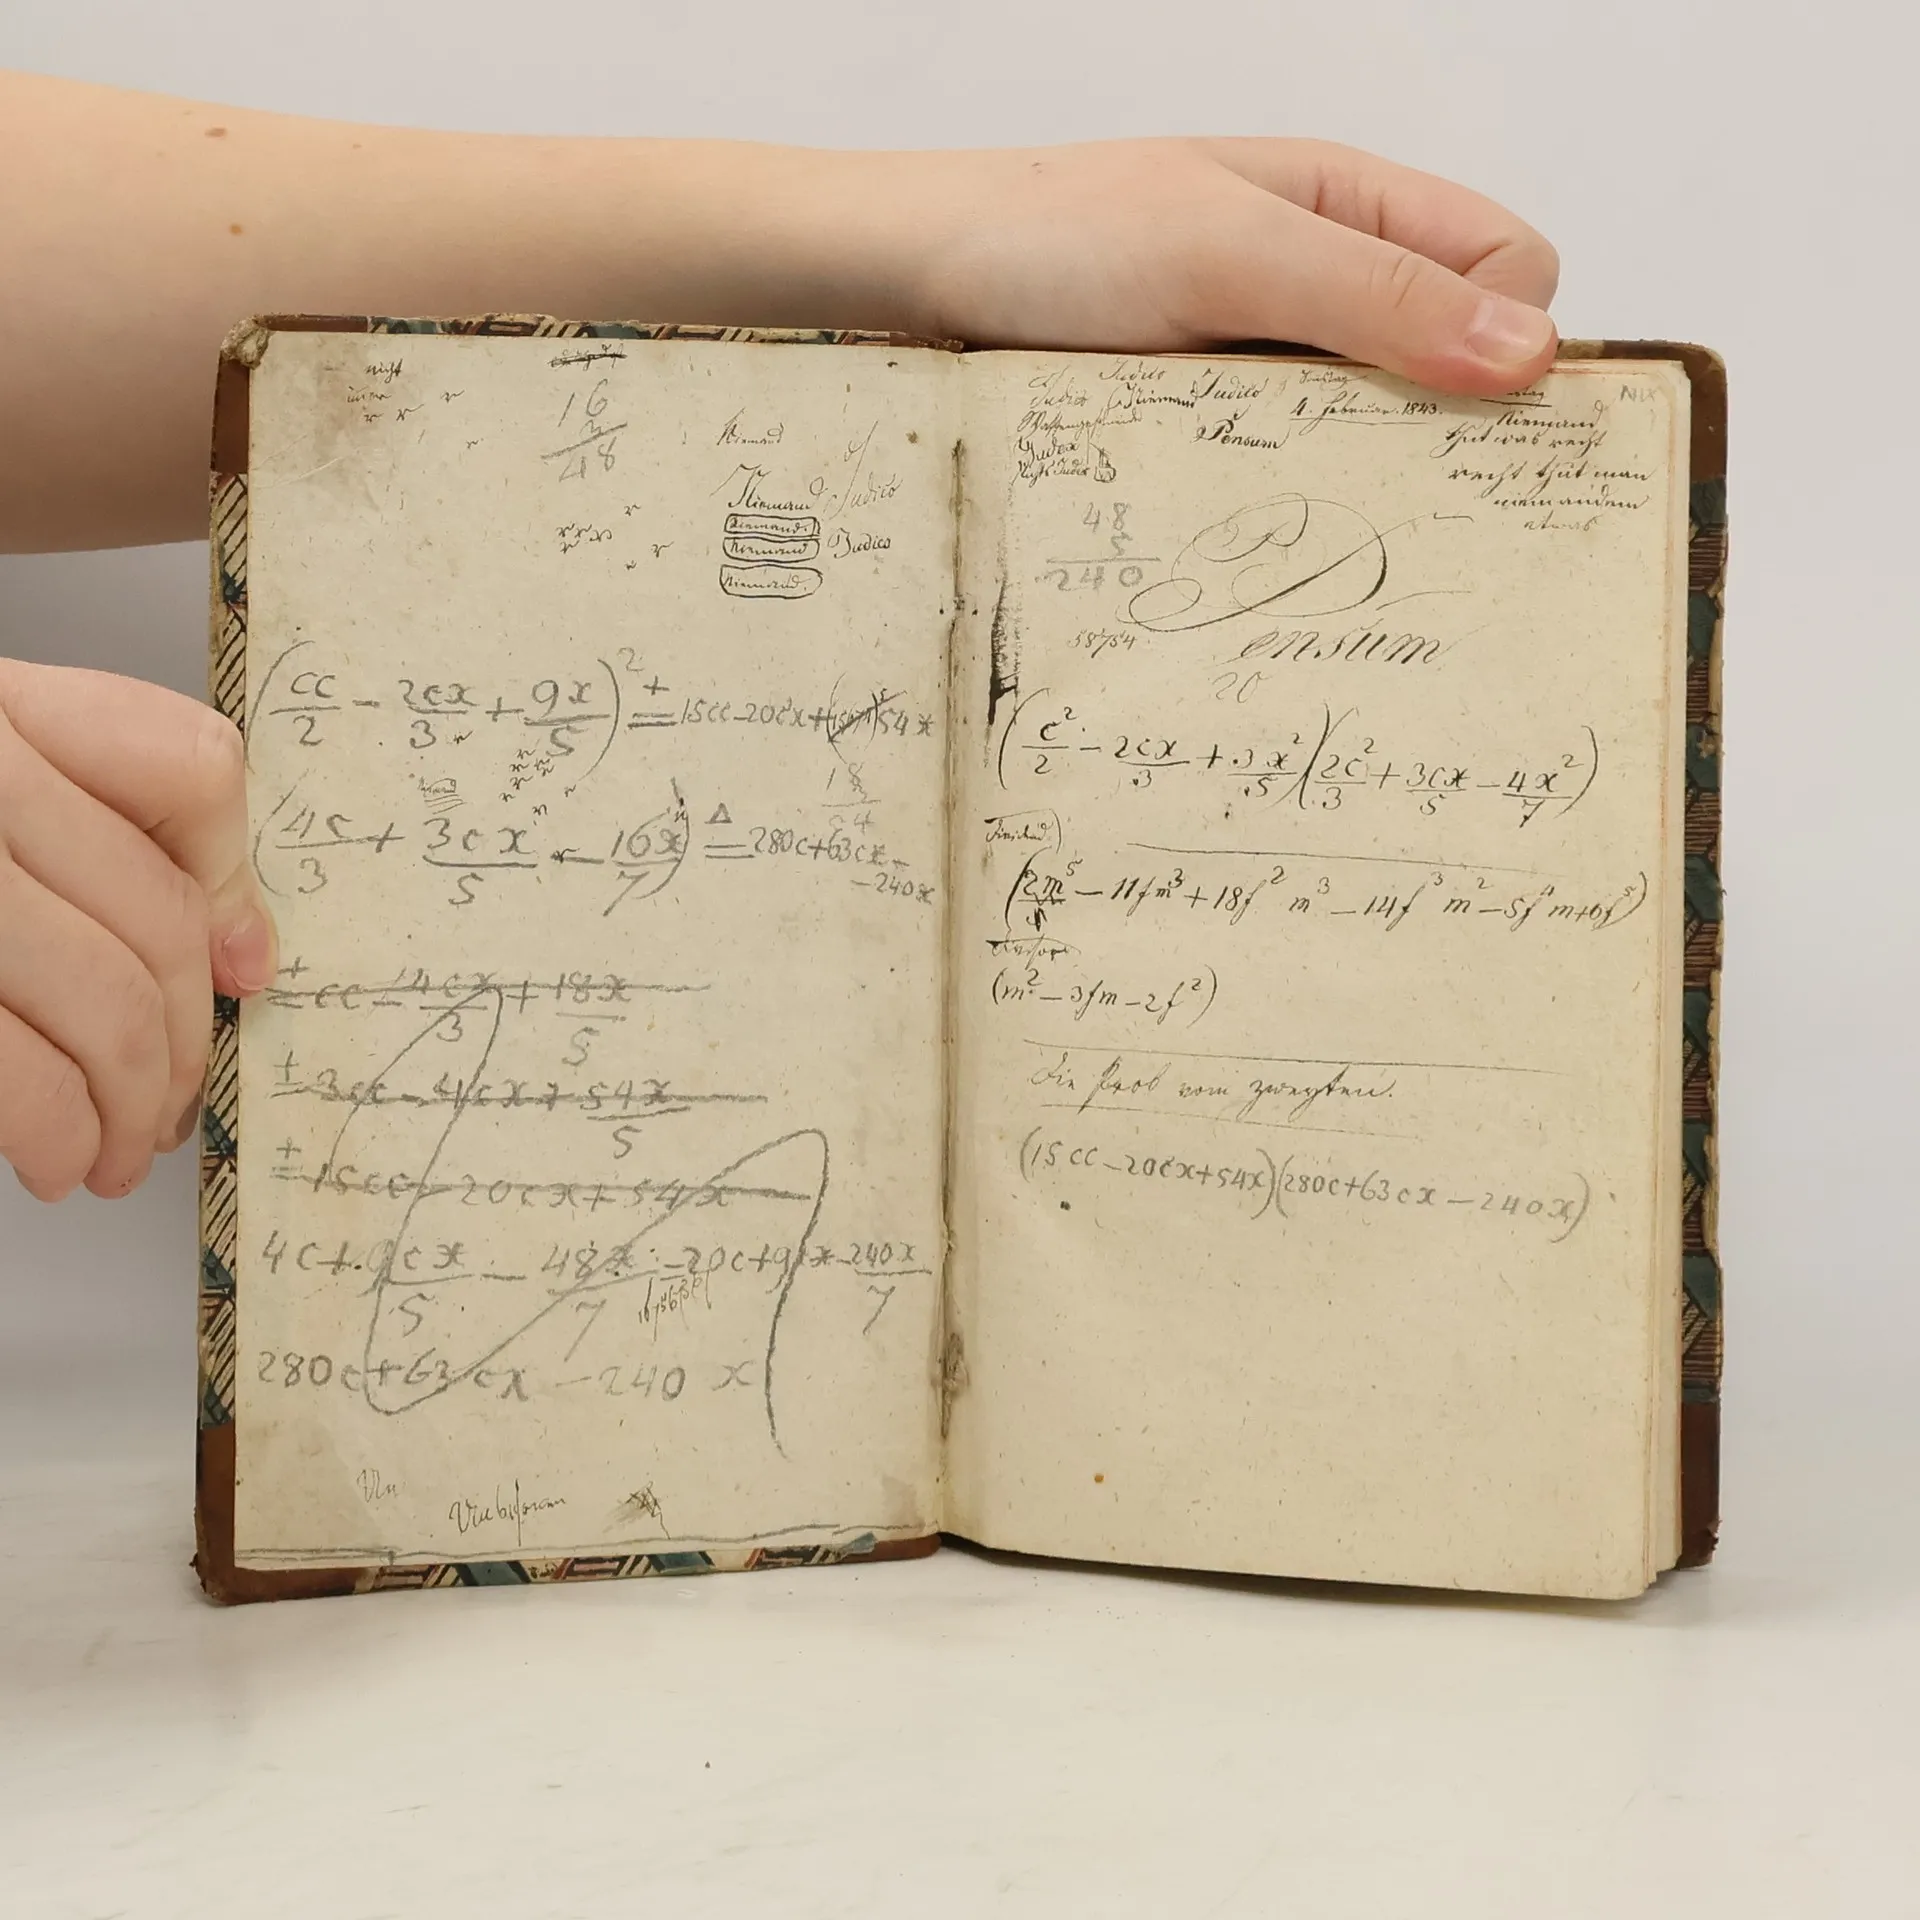 nicht
immer
r r r
16
3
48
Niemand
Niemand Judico
Niemand.
Niemand Judico
Niemand.
(cc/2 - 2cx/3 + 9x/5)² ± 15cc-20cx+54x
18
54
(4c/3 + 3cx/5 - 16x/7) = 280c+63cx-
-240x
± cc - 4cx/3 + 18x/5
± 3cc - 4cx + 54x/5
± 15cc - 20cx + 54x
4c + 9cx/5 - 48x/7 = 20c+9cx-240x/7
280c+63cx - 240 x
Judico
Judico Niemand Judico
4. Februar. 1843.
Pensum
Judex
Nichts Judex
NIX
Niemand
thut was recht
recht thut man
niemandem
etwas
48
5
240
58754
Pensum
20
(c²/2 - 2cx/3 + 3x²/5)(2c²/3 + 3cx/5 - 4x²/7)
Dividend)
(2m⁵ - 11fm³ + 18f² m³ - 14f³ m² - 5f⁴ m+6f⁵)
Divisor
(m² - 3fm - 2f²)
Die Prob vom zweyten.
(15cc-20cx+54x)(280c+63cx-240x)